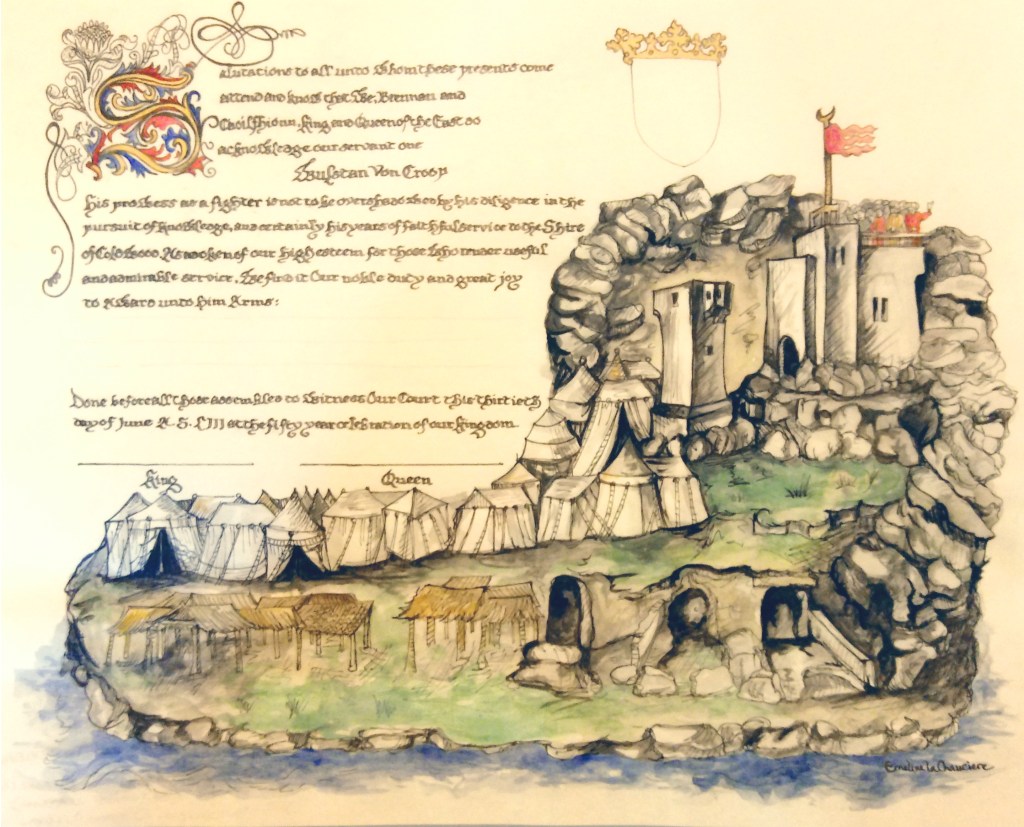 Salutations to all unto Whom these presents come
attend and know that We, Brennan and
Caoilfhionn, King and Queen of the East do
acknowledge our servant one
Wulstan Von Croop
His prowess as a fighter is not to be overshadowed by his diligence in the
pursuit of knowledge, and certainly his years of faithful service to the Shire
of Coldwood. As token of our high esteem for those Who render useful
and admirable service, We find it Our noble duty and great joy
to Award unto him Arms:
Done before all those assembled to Witness Our Court this thirtieth
day of June A. S. LIII at the fifty year celebration of our kingdom.
King Queen